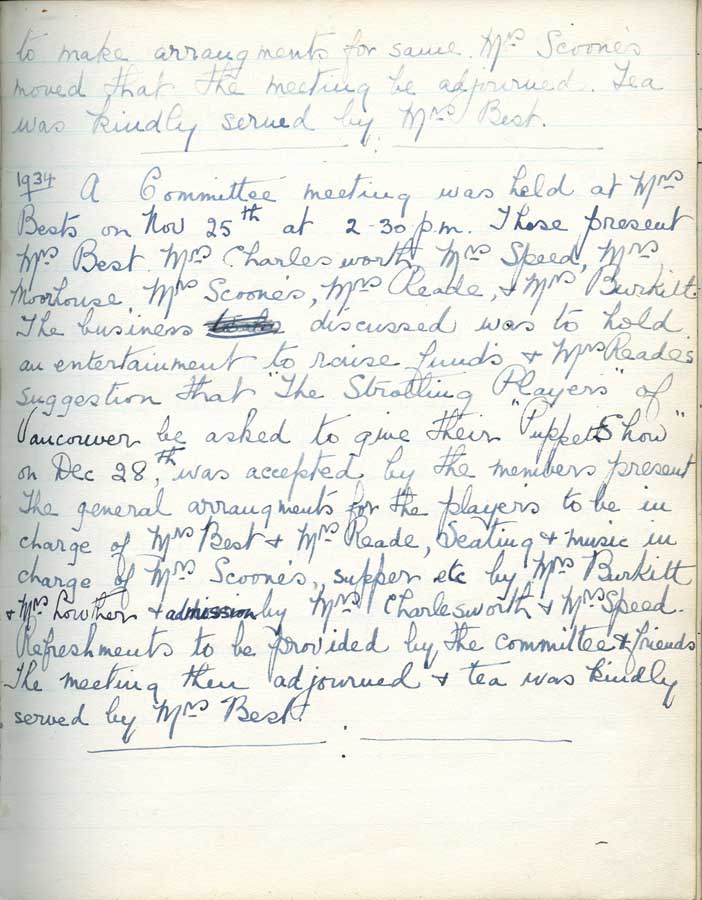 to make arrangments for same. Mrs Scoones
moved that the meeting be adjourned. Tea
was kindly served by Mrs Best.
1934 A Committee meeting was held at Mrs
Bests on Nov 25th at 2-30 p.m. Those present
Mrs Best. Mrs Charlesworth, Mrs Speed, Mrs
Moorhouse, Mrs Scoones, Mrs Reade, & Mrs Burkitt.
The business discussed was to hold
an entertainment to raise funds & Mrs Reade's
suggestion that "The Strolling Players" of
Vancouver be asked to give their "Puppet Show"
on Dec 28th, was accepted by the members present
The general arrangments for the players to be in
charge of Mrs Best & Mrs Reade, Seating & music in
charge of Mrs Scoones, supper etc by Mrs Burkitt
& Mrs Lowther & admission by Mrs Charlesworth & Mrs Speed.
Refreshments to be provided by the committee & friends
The meeting then adjourned & tea was kindly
served by Mrs Best.